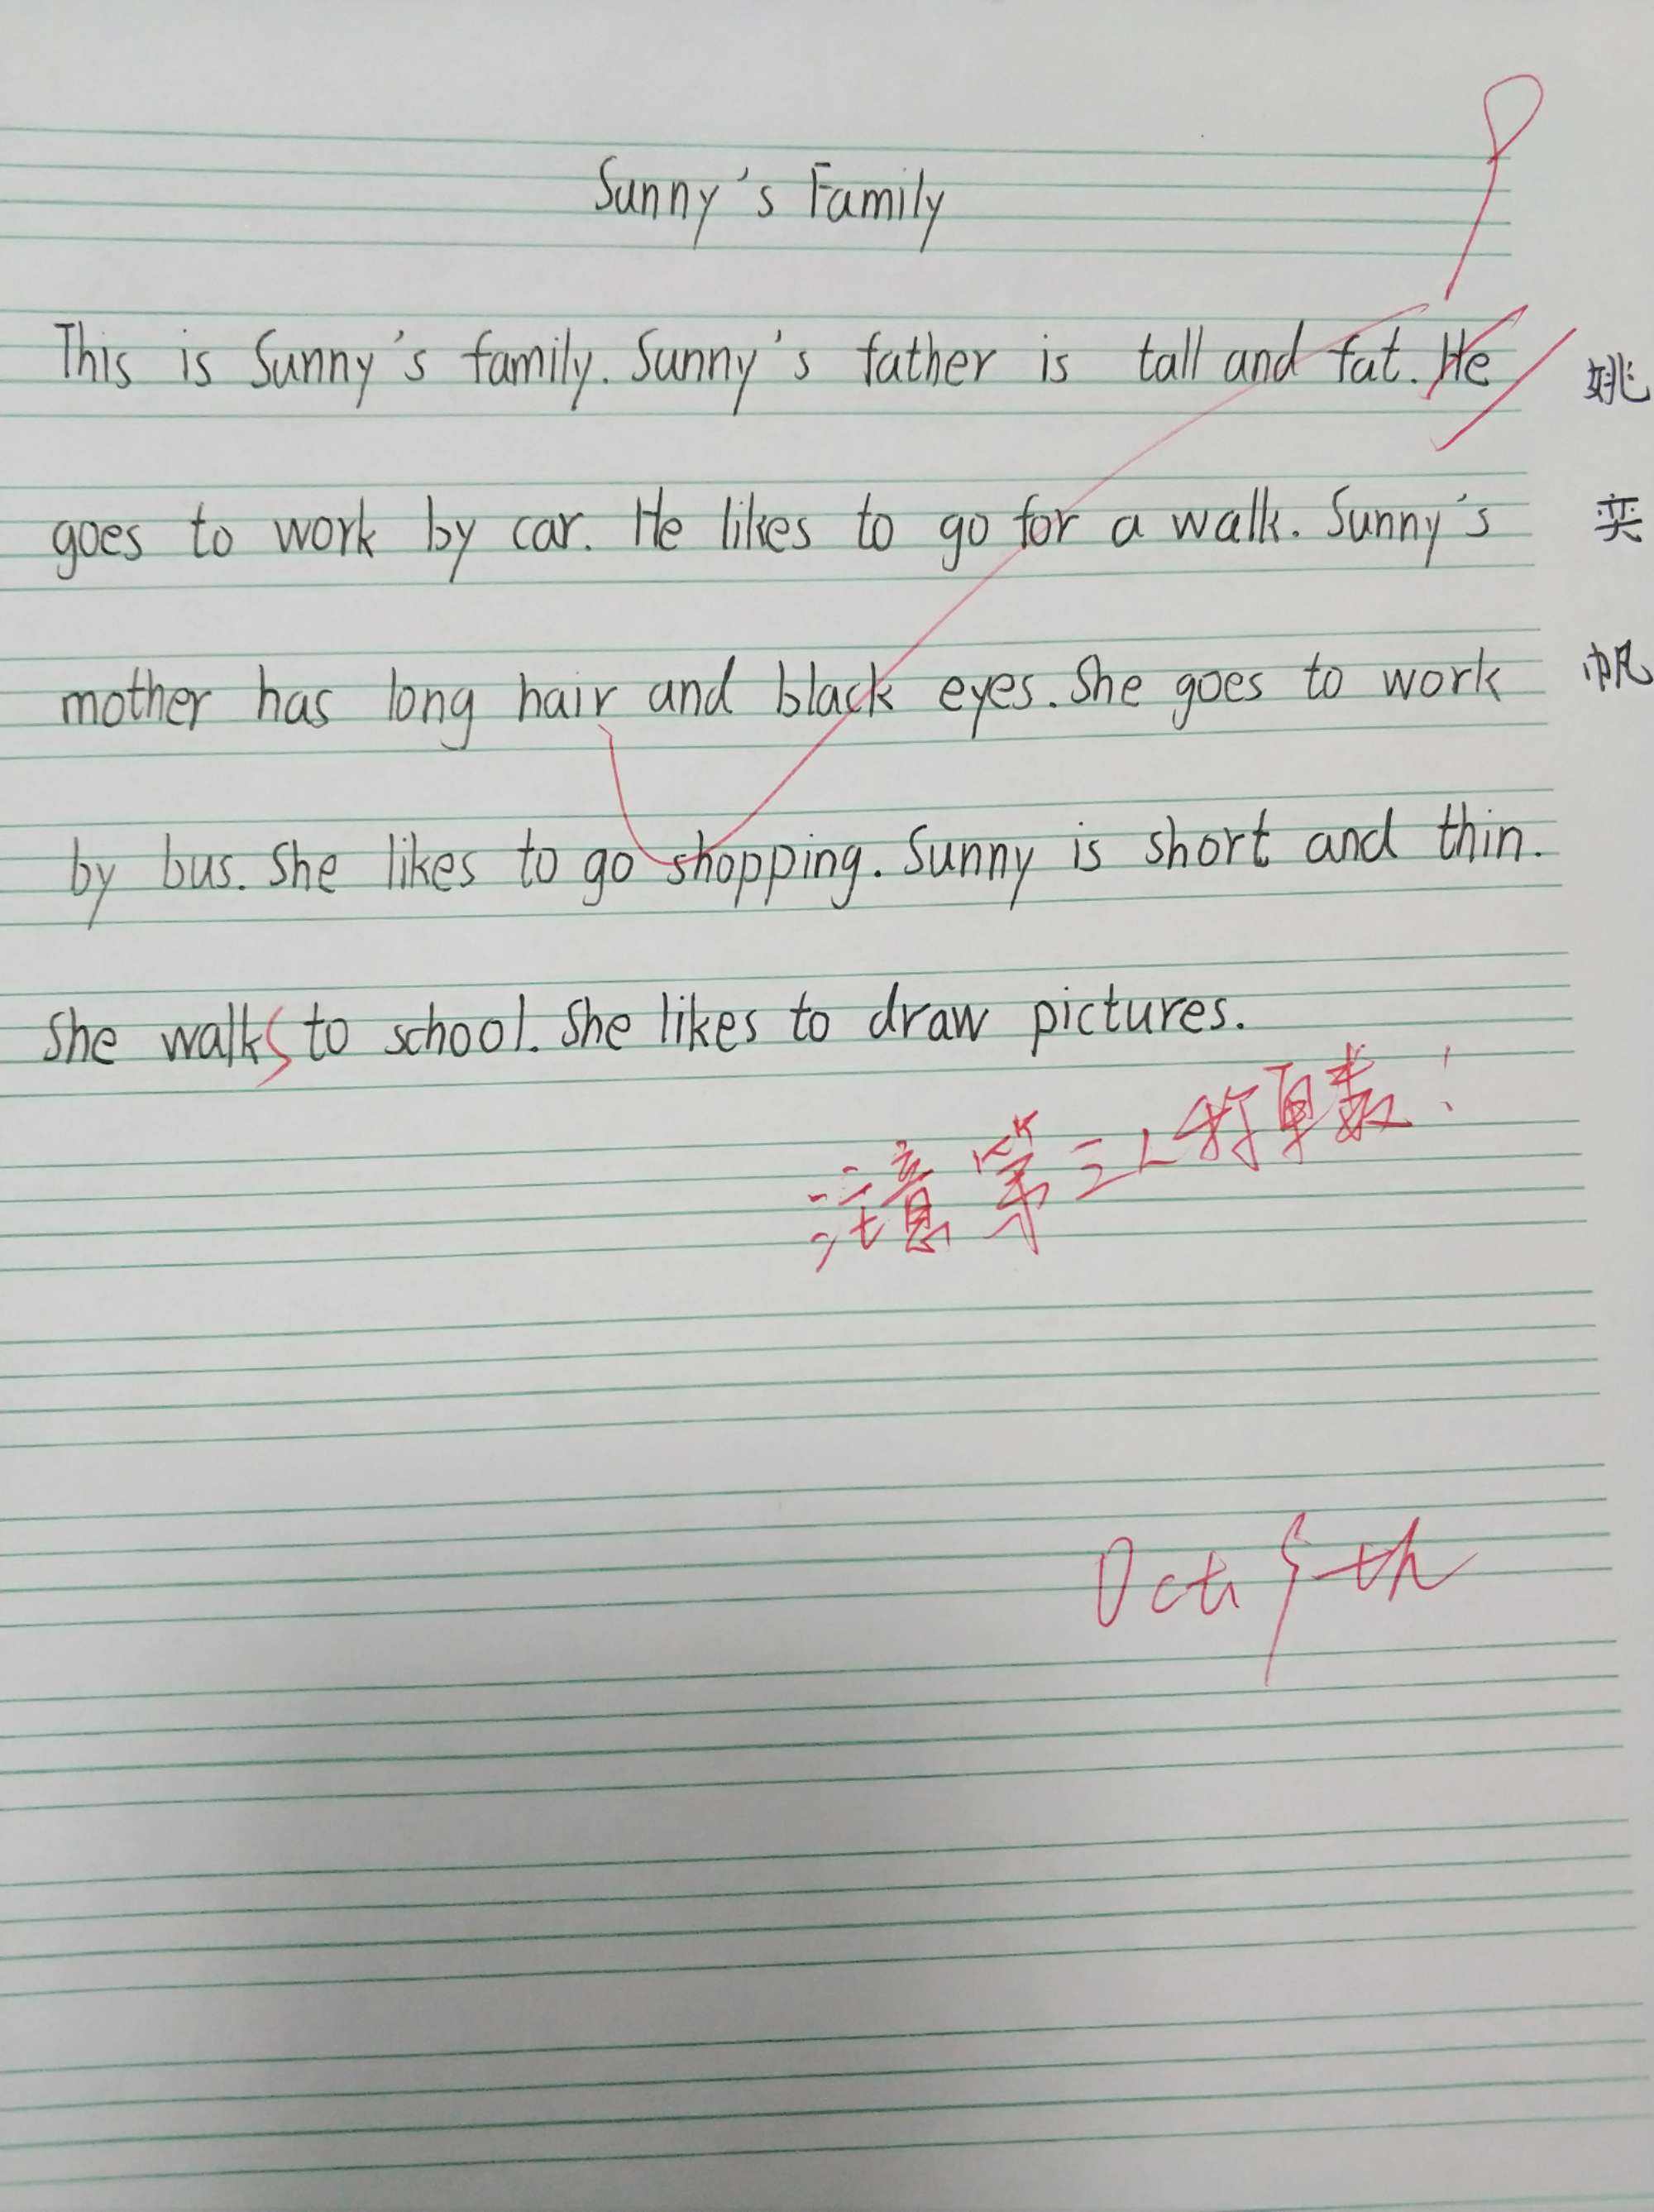 Sunny's Family
This is Sunny's family. Sunny's father is tall and fat. He
goes to work by car. He likes to go for a walk. Sunny's
mother has long hair and black eyes. She goes to work
by bus. She likes to go shopping. Sunny is short and thin.
She walks to school. She likes to draw pictures.
姚
奕
帆
注意第三人称单数!
Oct. 9th